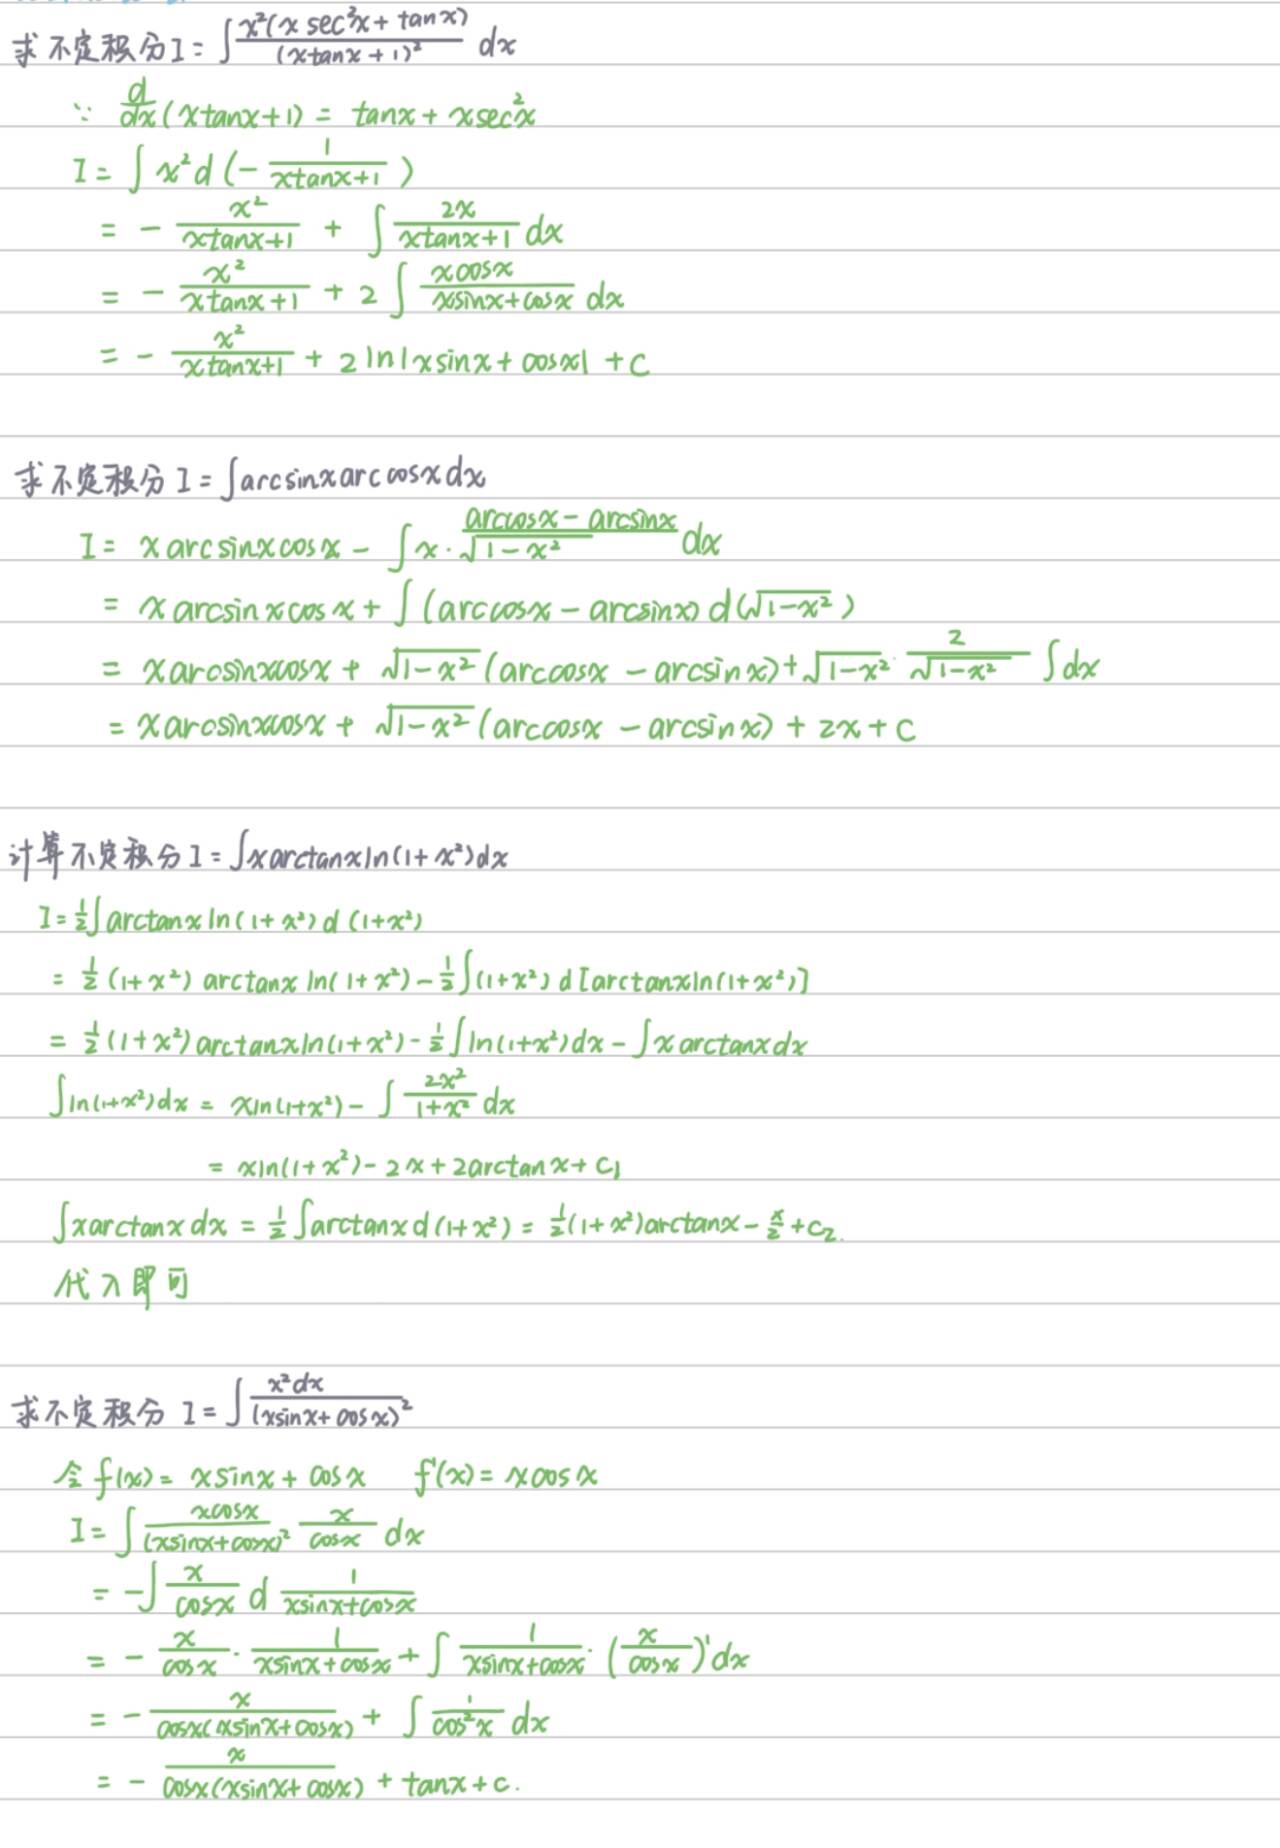 求不定积分I = ∫ x²(x sec²x + tanx) / (xtanx + 1)² dx
∵ d/dx (xtanx+1) = tanx + xsec²x
I = ∫ x² d (- 1/(xtanx+1))
= - x²/(xtanx+1) + ∫ 2x/(xtanx+1) dx
= - x²/(xtanx+1) + 2 ∫ xcosx/(xsinx+cosx) dx
= - x²/(xtanx+1) + 2 ln|xsinx + cosx| + C
求不定积分 I = ∫arcsinxarccosxdx
I = xarcsinxcosx - ∫ x · (arccosx - arcsinx)/√(1-x²) dx
= xarcsinxcosx + ∫ (arccosx - arcsinx) d(√(1-x²))
= xarcsinxcosx + √(1-x²) (arccosx - arcsinx) + √(1-x²) · 2/√(1-x²) ∫dx
= xarcsinxcosx + √(1-x²) (arccosx - arcsinx) + 2x + C
计算不定积分I = ∫xarctanxln(1+x²)dx
I = 1/2 ∫ arctanx ln(1+x²) d (1+x²)
= 1/2 (1+x²) arctanx ln(1+x²) - 1/2 ∫(1+x²) d [arctanxln(1+x²)]
= 1/2 (1+x²) arctanxln(1+x²) - 1/2 ∫ln(1+x²)dx - ∫xarctanxdx
∫ln(1+x²)dx = xln(1+x²) - ∫ 2x²/(1+x²) dx
= xln(1+x²) - 2x + 2arctanx + C₁
∫xarctanxdx = 1/2 ∫arctanxd(1+x²) = 1/2(1+x²)arctanx - x/2 + C₂.
代入即可
求不定积分 I = ∫ x²dx/(xsinx+cosx)²
令 f(x) = xsinx + cosx f'(x) = xcosx
I = ∫ xcosx/(xsinx+cosx)² x/cosx dx
= -∫ x/cosx d 1/(xsinx+cosx)
= - x/cosx · 1/(xsinx+cosx) + ∫ 1/(xsinx+cosx) · (x/cosx)' dx
= - x/(cosx(xsinx+cosx)) + ∫ 1/cos²x dx
= - x/(cosx(xsinx+cosx)) + tanx + C.